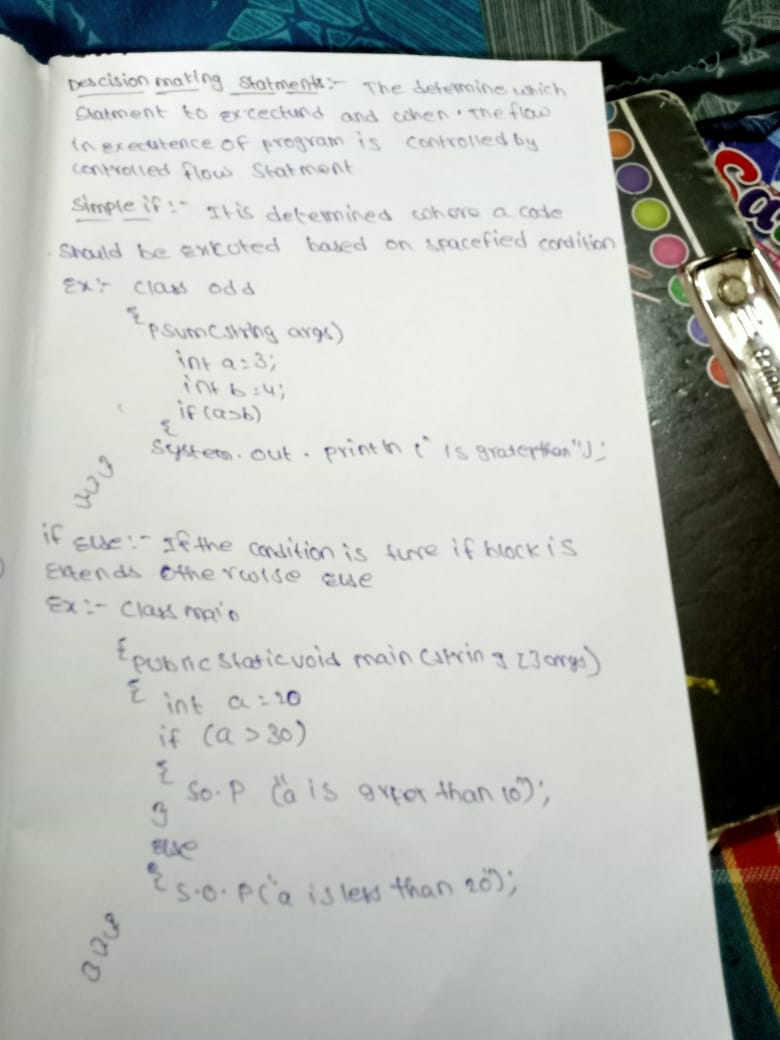 Descision making Statments:- The determine which
Statment to excectund and when. The flow
in executence of program is controlled by
controlled flow Statment
Simple if:- It is determined where a code
should be exicuted based on spacefied condition
Ex:- class odd
{
Psvm(string args)
int a=3;
int b=4;
if(a>b)
{
System.out.println (" is graterthan");
}}}
if else:- If the condition is ture if block is
Extends otherwise else
Ex:- class main
{public static void main (string []args)
{ int a=20
if (a>30)
{ So.P ("a is grter than 10");
}
else
{ S.O.P("a is less than 20");
}}}